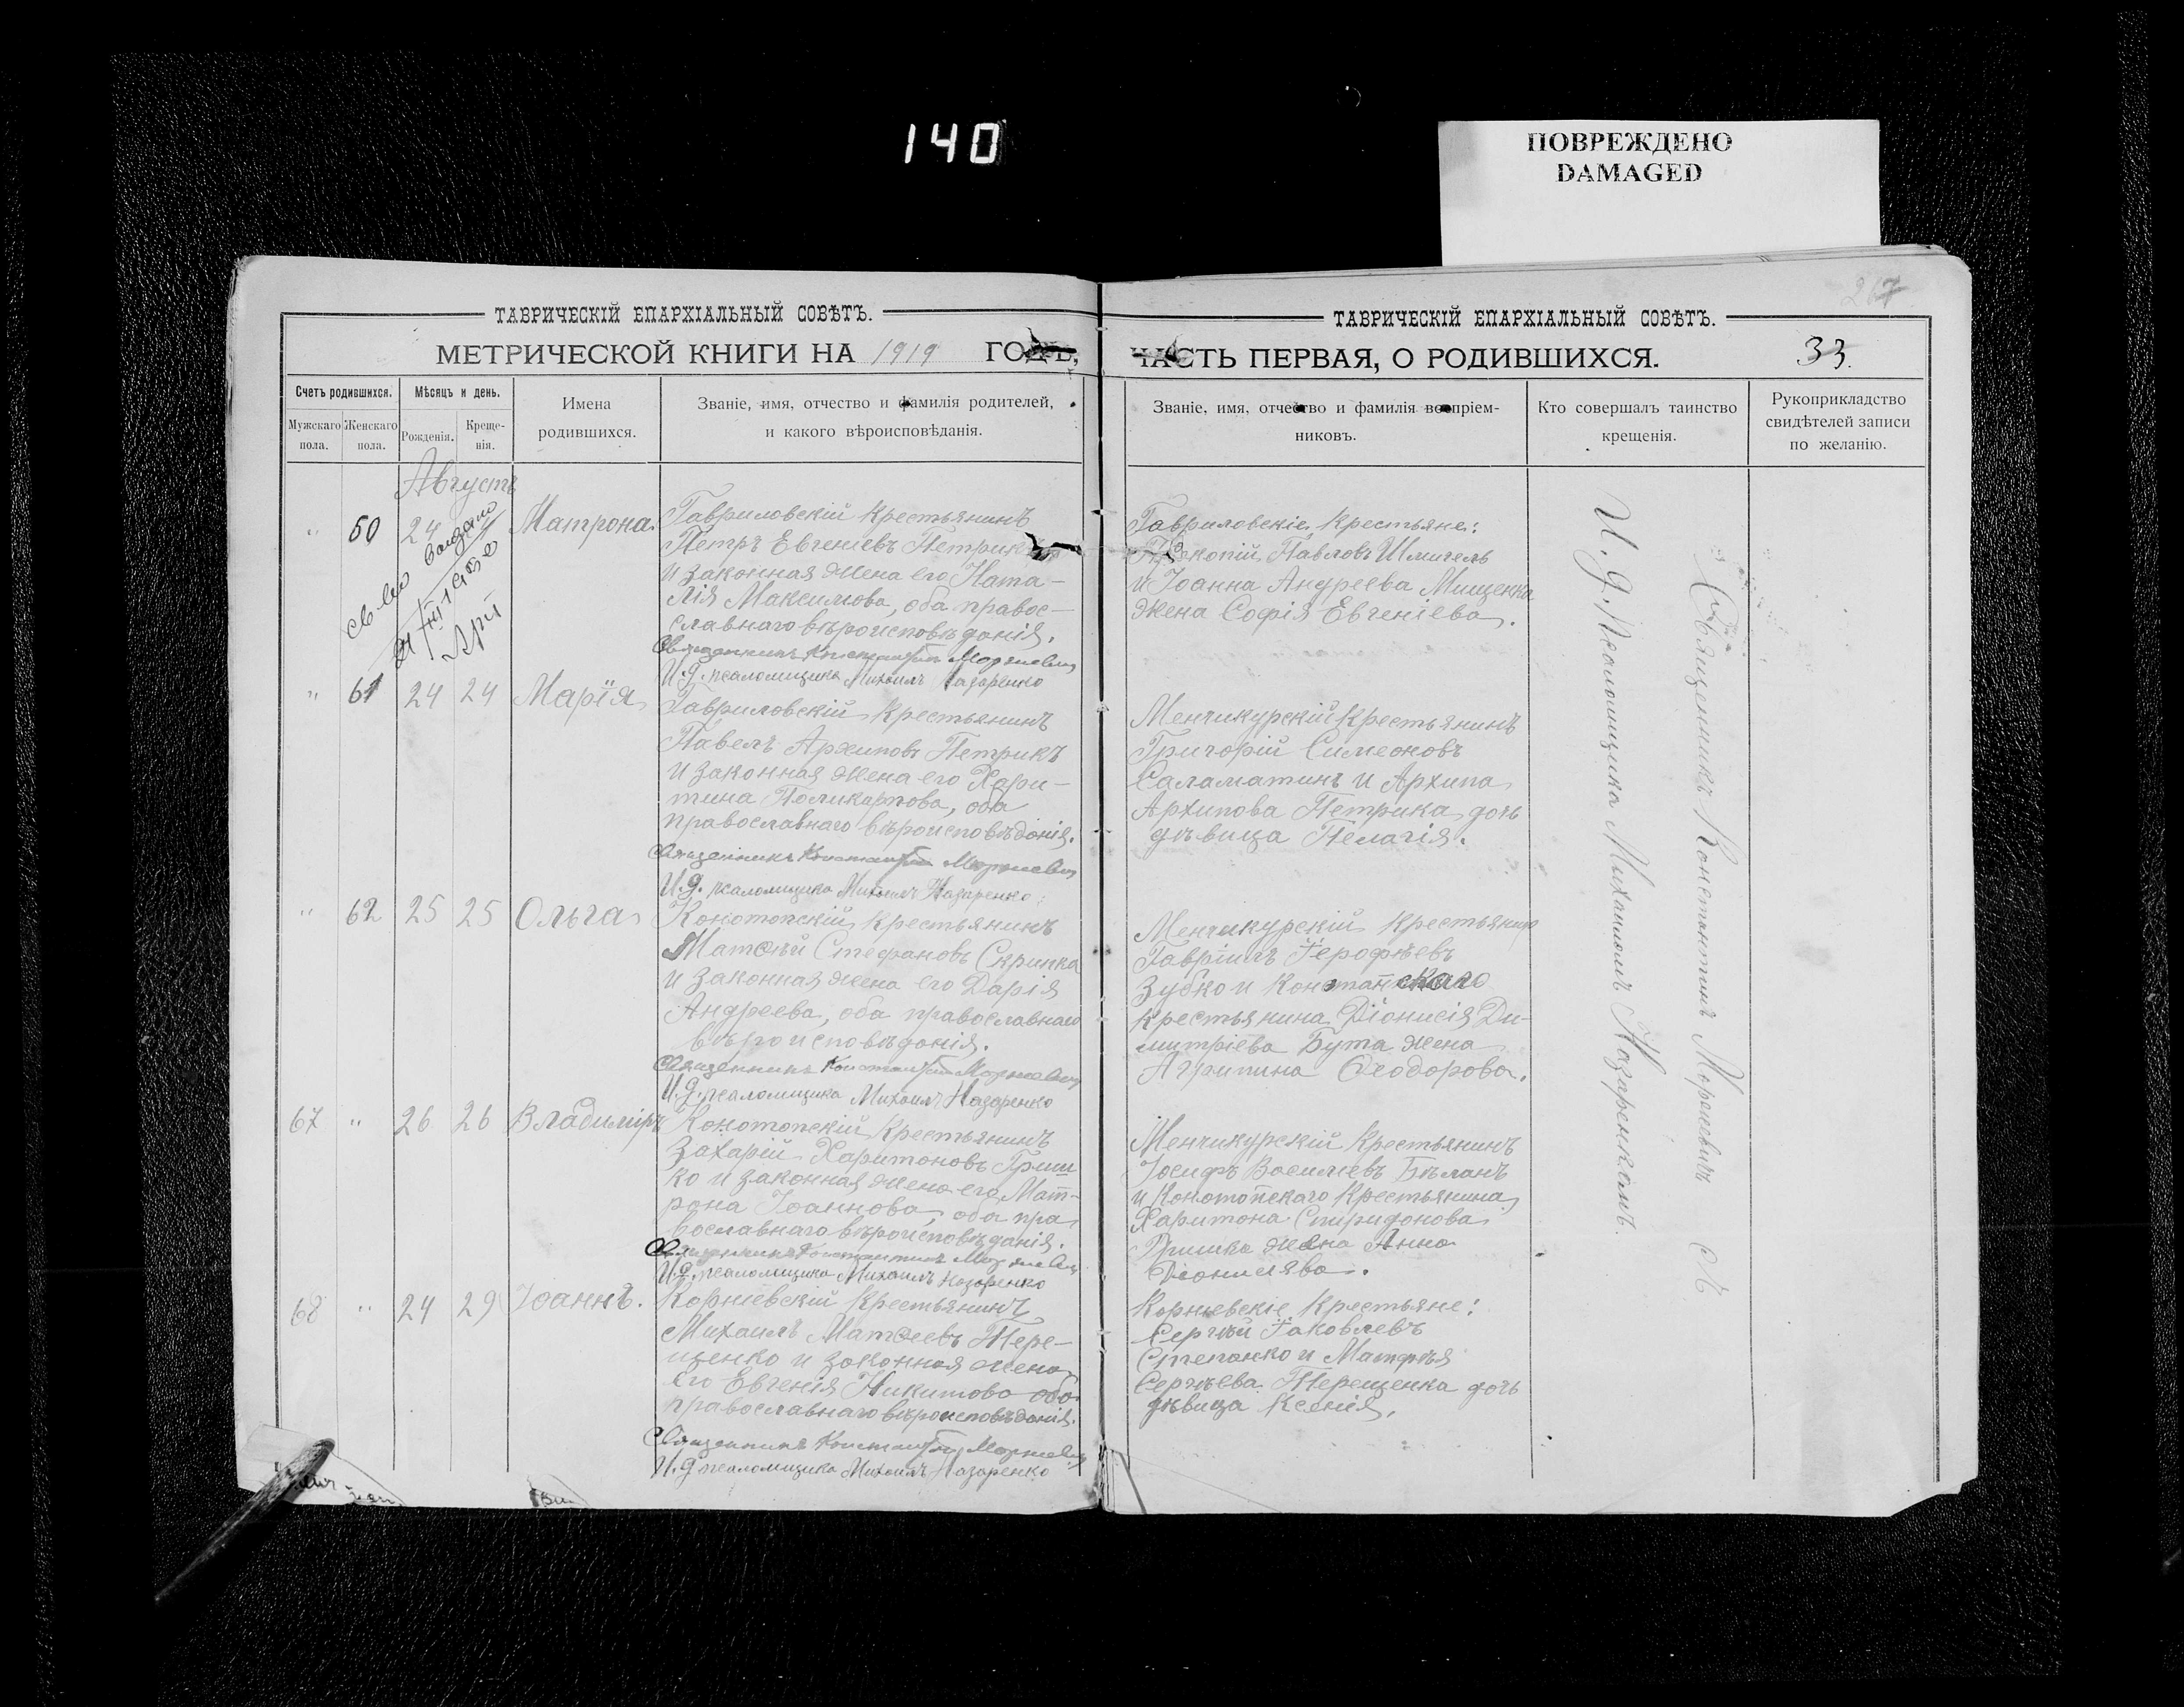 140
ПОВРЕЖДЕНО
DAMAGED
267
ТАВРИЧЕСКІЙ ЕПАРХІАЛЬНЫЙ СОВѢТЪ.
МЕТРИЧЕСКОЙ КНИГИ НА 1919 ГОДЪ,
Счетъ родившихся.
Мужскаго пола.
Женскаго пола.
Мѣсяцъ и день.
Рожденія.
Креще-
нія.
Имена
родившихся.
Званіе, имя, отчество и фамилія родителей,
и какого вѣроисповѣданія.
Августъ
" 60 24 Матрона.
св-во выдано
21/III-1930
Гавриловскій крестьянинъ
Петръ Евгеніевъ Петрикъ
и законная жена его Ната-
лія Максимова, оба правос-
славнаго вѣроисповѣданія.
Священникъ Константинъ
И. д. псаломщика Михаилъ Назаренко
" 61 24 24 Марія
Гавриловскій крестьянинъ
Павелъ Архиповъ Петрикъ
и законная жена его Хари-
тина Поликарпова, оба
православнаго вѣроисповѣданія.
Священникъ Константинъ
И. д. псаломщика Михаилъ Назаренко
" 62 25 25 Ольга
Конотопскій крестьянинъ
Матѳѣй Стефановъ Скрипка
и законная жена его Дарія
Андреева, оба православнаго
вѣроисповѣданія.
Священникъ Константинъ
И. д. псаломщика Михаилъ Назаренко
67 " 26 26 Владиміръ
Конотопскій крестьянинъ
Захарій Харитоновъ Гриш
ко и законная жена его Мат-
рона Іоаннова, оба пра
вославнаго вѣроисповѣданія.
Священникъ Константинъ
И. д. псаломщика Михаилъ Назаренко
68 " 24 29 Іоаннъ.
Корніевскій крестьянинъ
Михаилъ Матѳеевъ Тере-
щенко и законная жена
его Евгенія Никитова оба
православнаго вѣроисповѣданія.
Священникъ Константинъ
И. д. псаломщика Михаилъ Назаренко
ТАВРИЧЕСКІЙ ЕПАРХІАЛЬНЫЙ СОВѢТЪ.
ЧАСТЬ ПЕРВАЯ, О РОДИВШИХСЯ. 33.
Званіе, имя, отчество и фамилія воспріем-
никовъ.
Кто совершалъ таинство
крещенія.
Рукоприкладство
свидѣтелей записи
по желанію.
Гавриловскіе крестьяне:
Прокопій Павловъ Шмигель
и Іоанна Андреева Мищенка
жена Софія Евгеніева.
Менчикурскій крестьянинъ
Григорій Симеоновъ
Саламатинъ и Архипа
Архипова Петрика дочь
дѣвица Пелагія.
Менчикурскій крестьянинъ
Гавріилъ Іерофѣевъ
Зубко и Конотопскаго
крестьянина Діонисія Ди-
митріева Бута жена
Агрипина Ѳеодорова.
Менчикурскій крестьянинъ
Іосифъ Васильевъ Бѣланъ
и Конотопскаго крестьянина
Харитона Спиридонова
Гришка жена Анна
Діонисіева.
Корніевскіе крестьяне:
Сергѣй Іаковлевъ
Степанко и Матфѣя
Сергѣева Терещенка дочь
дѣвица Ксенія.
И. д. псаломщика Михаиломъ Назаренкомъ.
Священникъ Константинъ